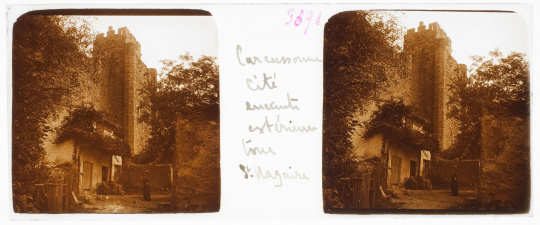 Carcassonne
Cité
enceinte
extérieure
tour
St Nazaire